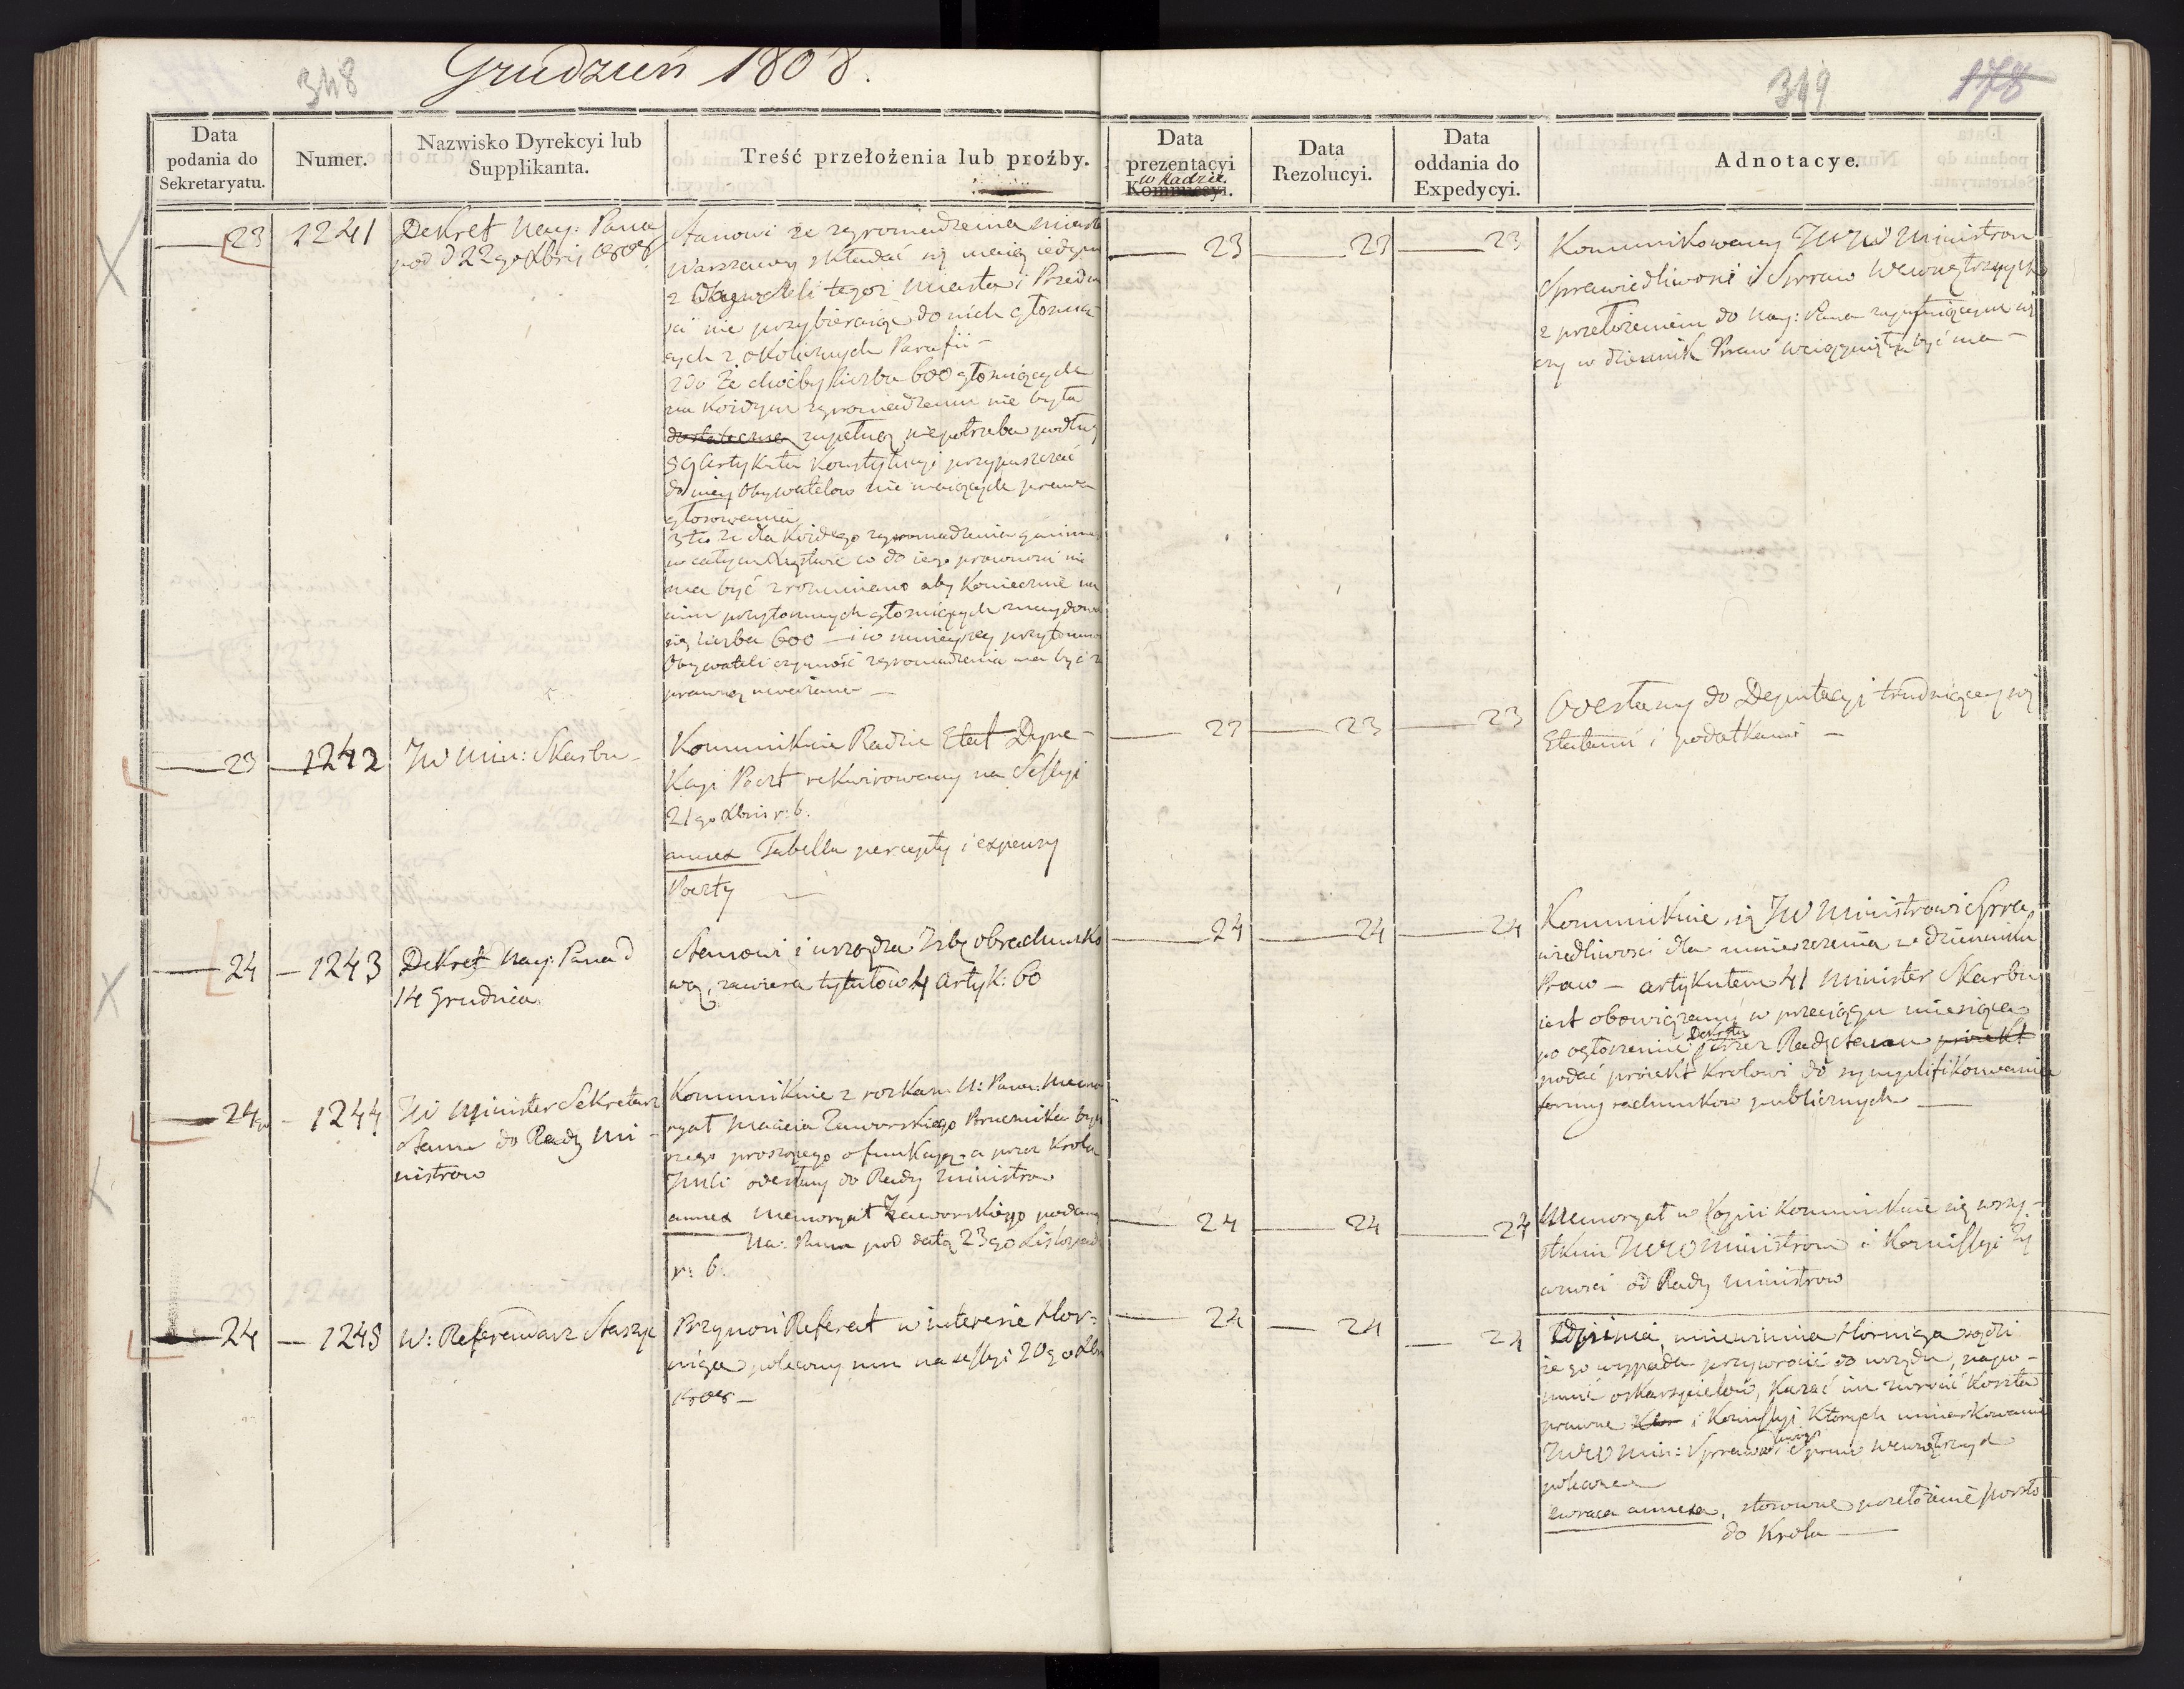 348
Grudzień 1808.
319
178
Data podania do Sekretaryatu.
Numer.
Nazwisko Dyrekcyi lub Supplikanta.
Treść przełożenia lub proźby.
Data prezentacyi w Radzie Kommissyi.
Data Rezolucyi.
Data oddania do Expedycyi.
Adnotacye.
23
1241
Dekret Nay: Pana
pod d 22go Xbris 1808
Stanowi że zgromadzenia miasta
Warszawy składać się maią iedynie
z Obywateli tegoż Miasta i Przedm
ści nie przybieraiąc do nich głosuią
cych z okolicznych Parafii –
2do Że choćby liczba 600 głosuiących
na każdym zgromadzeniu nie była
dostateczna zupełną, niepotrzeba podług
59 Artykułu Konstytucyi przypuszczać
do niey Obywatelow nie maiących prawa
głosowania
3tio że dla każdego zgromadzenia gminne
w całym Xięstwie co do iego prawności nie
ma być rozumiano aby koniecznie na
nim przytomnych głosuiących znaydowa
się liczba 600 – i w mnieyszey przytomno
Obywateli czynność zgromadzenia ma być za
prawną uważana –
23
23
23
Kommunikowany JWW Ministrom
Sprawiedliwości i Spraw Wewnętrznych
z przełożeniem do Nay: Pana zapytuiącym się
czy w dziennik Praw wciągnięty być ma –
23
1242
JW Min: Skarbu –
Kommunikuie Radzie Etat Dyre-
kcyi Poczt rekwirowany na Sessyi
21go Xbris r: b.
annex Tabella percepty i expensy
Poczty –
23
23
23
Odesłany do Deputacyi trudniącey się
Etatami i podatkami –
24
– 1243
Dekret Nay: Pana d
14 Grudnia
Stanowi i urządza Izbę obrachunko
wą, zawiera tytułow 4 artyk: 60
24
24
24
Kommunikuie się JW Ministrowi Spra
wiedliwości dla umieszczenia w dzienniku
Praw – artykułem 41 Minister Skarbu
iest obowiązany w przeciągu miesiąca
po ogłoszeniu Dekretu przez Radę Stanu proiekt
podać proiekt Krolowi do symplifikowania
formy rachunkow publicznych –
24go
– 1244
JW Minister Sekretarz
Stanu do Rady Mi
nistrow
Kommunikuie z rozkazu N: Pana Memo-
ryał Macieia Zaworskiego
rzego proszącego o funkcyą, a przez Krola
JMci odesłany do Rady Ministrow
annex Memoryał Zaworskiego podany
Na: Panu pod datą 23go Listopad
r: b.
24
24
24
Memoryał w kopii kommunikuie się wszy-
stkim JWW Ministrom i Kommissyi Ży
wności od Rady Ministrow
24
– 1245
W: Referendarz Staszyc
Przynosi Referat w interesie Hor-
niga polecony mu na sessyi 20go Xbr
1808 –
24
– 24
– 24
uniewinnia Horniga sądzi
że go wypada przywrócić do urzędu, napo-
mnić oskarzycielów, kazać im zwrócić koszta
prawne i Komissyi, których umiarkowanie
JWW Min: Sprawied: i Spraw Wewnętrznych
poleca
zwraca annexa, stosowne przełożenie poszło
do Krola –